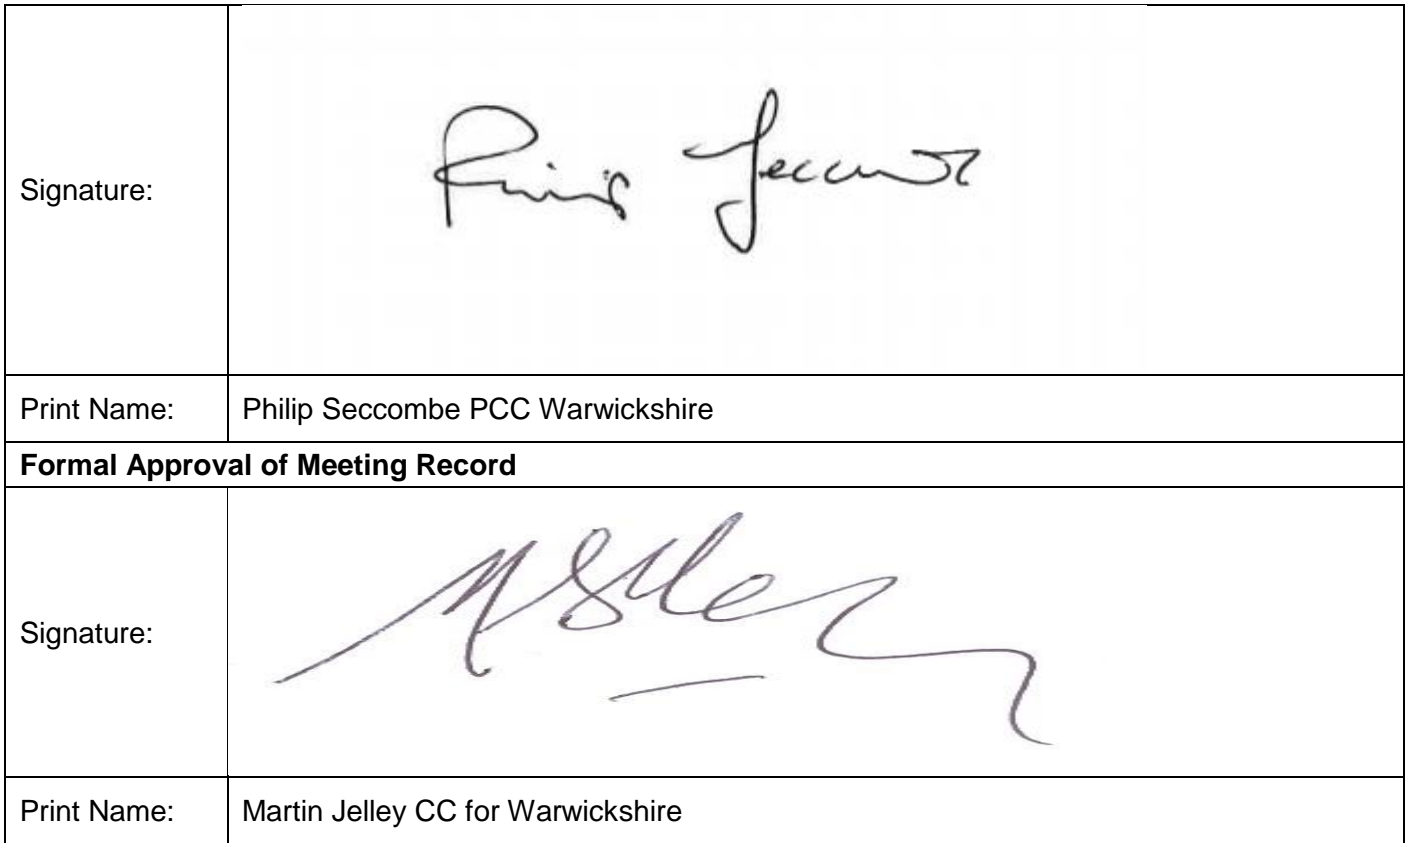 Signature:
Print Name: Philip Seccombe PCC Warwickshire
Formal Approval of Meeting Record
Signature:
Print Name: Martin Jelley CC for Warwickshire